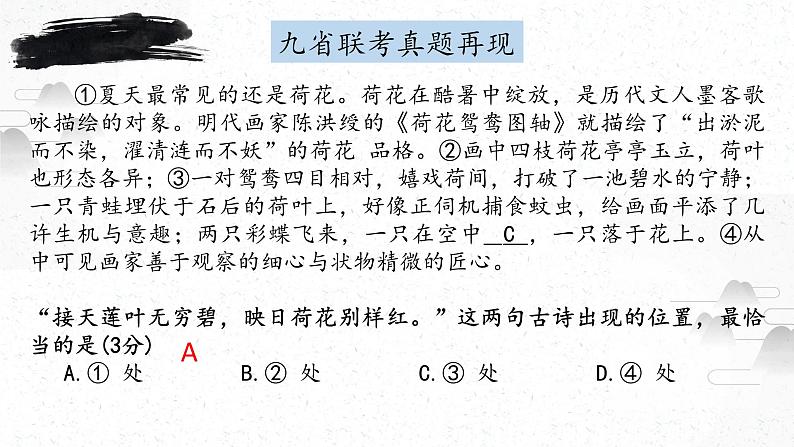 九省联考真题再现
①夏天最常见的还是荷花。荷花在酷暑中绽放，是历代文人墨客歌
咏描绘的对象。明代画家陈洪绶的《荷花鸳鸯图轴》就描绘了“出淤泥
而不染，濯清涟而不妖”的荷花 品格。②画中四枝荷花亭亭玉立，荷叶
也形态各异；③一对鸳鸯四目相对，嬉戏荷间，打破了一池碧水的宁静；
一只青蛙埋伏于石后的荷叶上，好像正伺机捕食蚊虫，给画面平添了几
许生机与意趣；两只彩蝶飞来，一只在空中__C__，一只落于花上。④从
中可见画家善于观察的细心与状物精微的匠心。
“接天莲叶无穷碧，映日荷花别样红。”这两句古诗出现的位置，最恰
当的是(3分) A
A.① 处 B.② 处 C.③ 处 D.④ 处